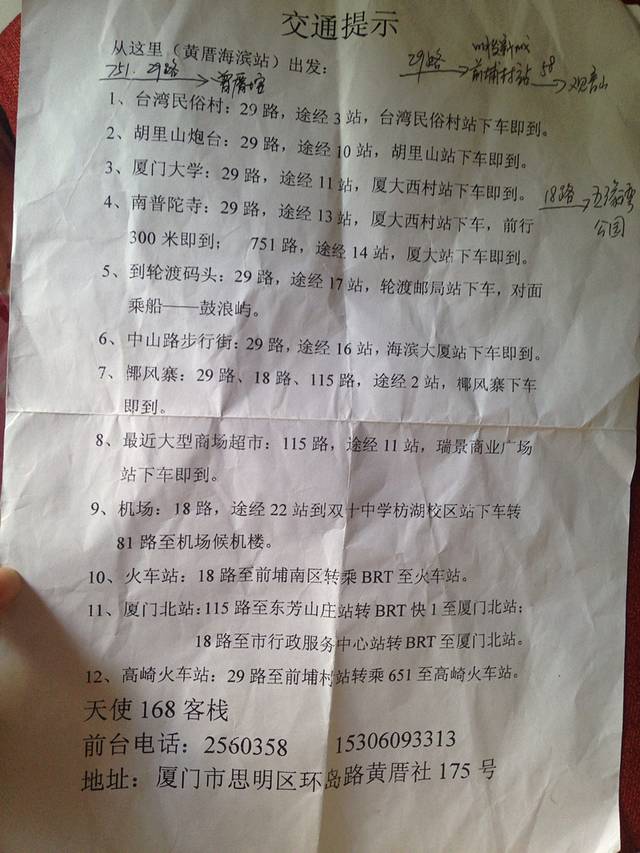 交通提示
从这里（黄厝海滨站）出发：
751. 29路 → 曾厝垵
29路 → 前埔村站 58 → 观音山
1、台湾民俗村：29 路，途经 3 站，台湾民俗村站下车即到。
2、胡里山炮台：29 路，途经 10 站，胡里山站下车即到。
3、厦门大学：29 路，途经 11 站，厦大西村站下车即到。
18路 → 五缘湾
公园
4、南普陀寺：29 路，途经 13 站，厦大西村站下车，前行
300 米即到； 751 路，途经 14 站，厦大站下车即到。
5、到轮渡码头：29 路，途经 17 站，轮渡邮局站下车，对面
乘船——鼓浪屿。
6、中山路步行街：29 路，途经 16 站，海滨大厦站下车即到。
7、椰风寨：29 路、18 路、115 路，途经 2 站，椰风寨下车
即到。
8、最近大型商场超市：115 路，途经 11 站，瑞景商业广场
站下车即到。
9、机场：18 路，途经 22 站到双十中学枋湖校区站下车转
81 路至机场候机楼。
10、火车站：18 路至前埔南区转乘 BRT 至火车站。
11、厦门北站：115 路至东芳山庄站转 BRT 快 1 至厦门北站；
18 路至市行政服务中心站转 BRT 至厦门北站。
12、高崎火车站：29 路至前埔村站转乘 651 至高崎火车站。
天使 168 客栈
前台电话：2560358 15306093313
地址：厦门市思明区环岛路黄厝社 175 号